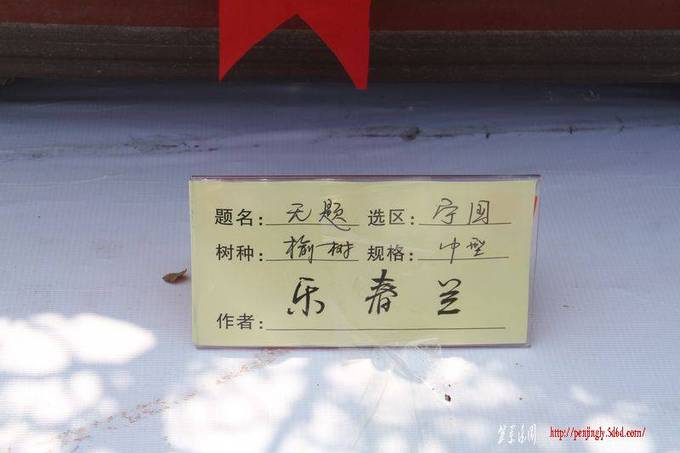 题名: 无题 选区: 宁国
树种: 榆树 规格: 中型
作者: 乐春兰
http://penjingly.5d6d.com/